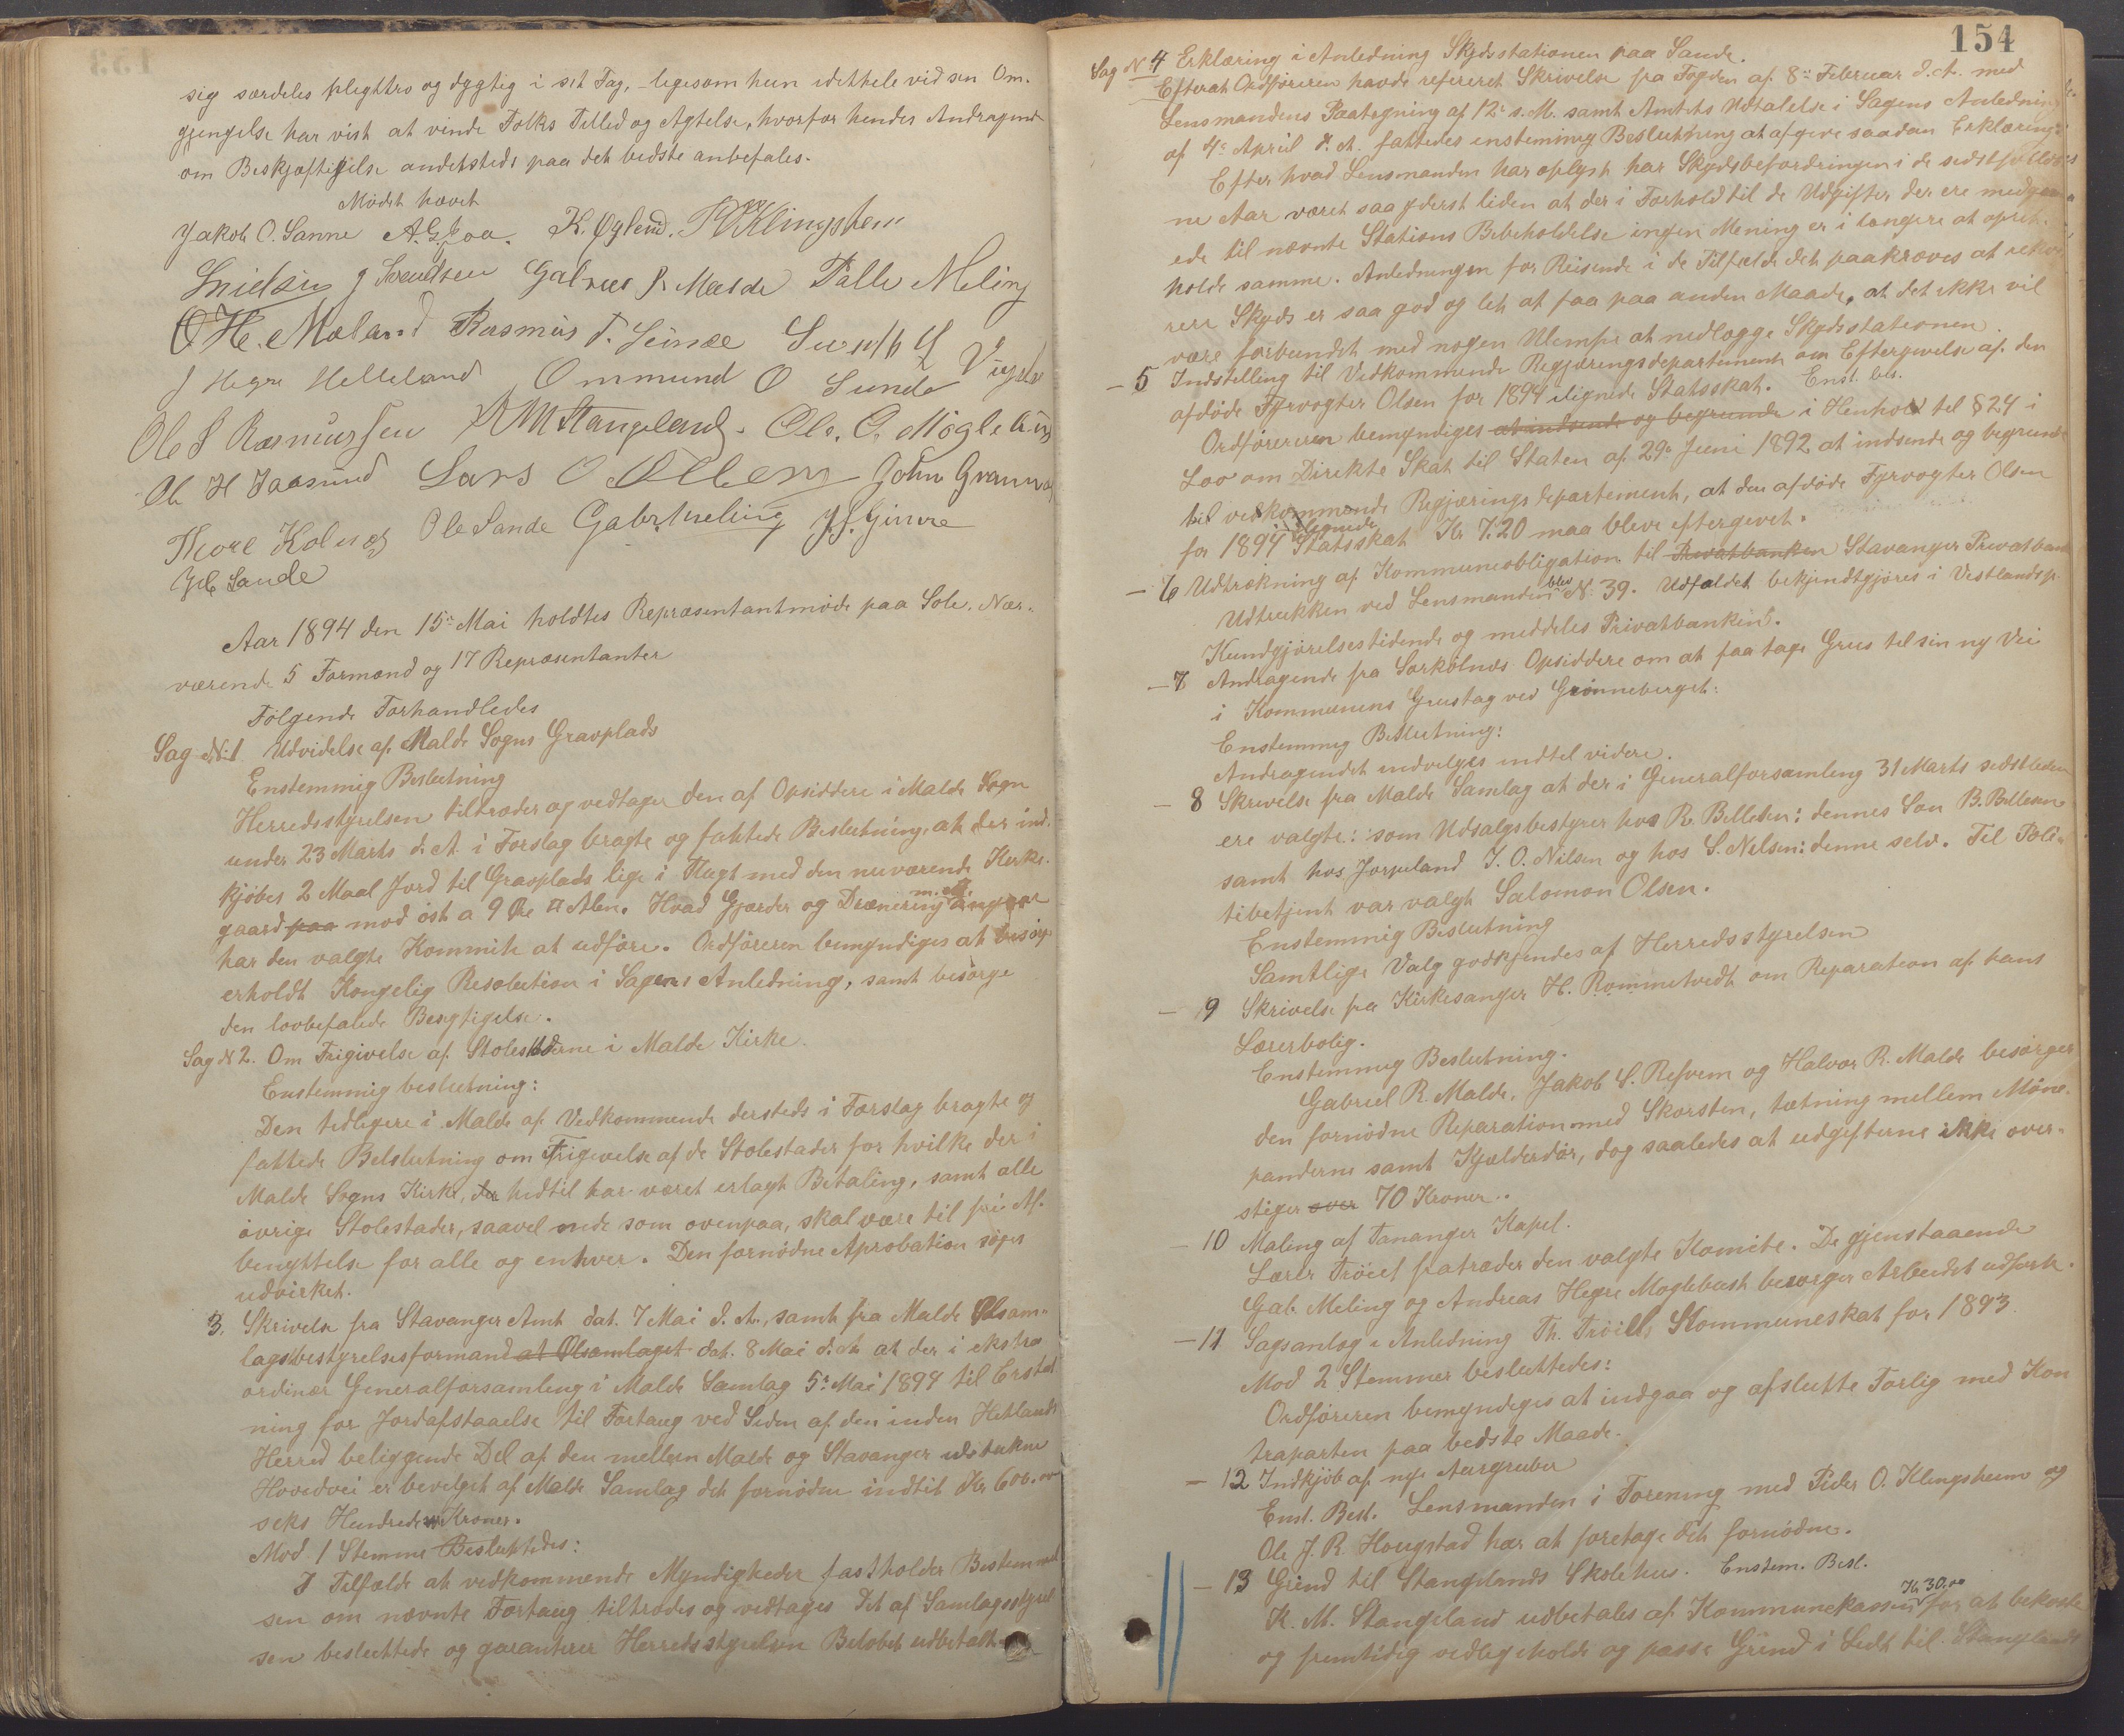 sig særdeles pligttro og dygtig i sit Fag, ligesom hun idethele ved sin Om-
gjængelse har vist at vinde Folks Tillid og Agtelse, hvorfor hendes Andragende
om Beskjæftigelse andetsteds paa det bedste anbefales.
Mødet hævet
Jakob O. Sanne A. G. Joa. K. Øglend. Klingsheim
J Svendsen Gabriel R Malde Palle Meling
O H. Meland Rasmus T. Sunde
J Hegre Helleland Ommund O Sunde Vigdel
Ole S Rasmussen K M Stangeland. Ole. G. Møglebust
Ole H Jaasund Lars O Øllem John Grannes
Thore Kolnes Ole Sande Gabr. Meling J. S. Gimre
Sande
Aar 1894 den 15de Mai holdtes Repræsentantmøde paa Sole. Nær-
værende 5 Formænd og 17 Repræsentanter
Følgende Forhandledes
Sag N: 1 Udvidelse af Malde Sogns Gravplads
Enstemmig Beslutning
Herredsstyrelsen tiltræder og vedtager den af Opsiddere i Malde Sogn
under 23 Marts d. A. i Forslag bragte og fattede Beslutning, at der ind-
kjøbes 2 Maal Jord til Gravplads lige i Flugt med den nuværende Kirke-
gaard paa mod øst a 9 Øre □ Alen. Hvad Gjærder og Drænering m. M. angaar
har den valgte Kommite at udføre. Ordføreren bemyndiges at besørge
erholdt Kongelig Resolution i Sagens Anledning, samt besørge
den lovbefalede Besigtigelse.
Sag N 2. Om Frigivelse af Stolestaderne i Malde Kirke.
Enstemmig beslutning:
Den tidligere i Malde af Vedkommende dersteds i Forslag bragte og
fattede Belslutning om Frigivelse af de Stolestader for hvilke der i
Malde Sogns Kirke, der hidtil har været erlagt Betaling, samt alle
øvrige Stolestader, saavel nede som ovenpaa, skal være til fri Af-
benyttelse for alle og enhver. Den fornødne Aprobation søges
udvirket.
3. Skrivelse fra Stavanger Amt dat. 7 Mai d. A., samt fra Malde Ølsam-
lagsbestyrelsesformand at Ølsamlaget dat. 8 Mai d. A. at der i ekstra
ordinær Generalforsamling i Malde Samlag 5te Mai 1894 til Erstat
ning for Jordafstaaelse til Fortaug ved Siden af den inden Hetlands
Herred beliggende Del af den mellem Malde og Stavanger udstukne
Hovedvei er bevilget af Malde Samlag det fornødne indtil Kr 600.00
seks Hundrede Kroner.
Mod 1 Stemme Besluttedes:
I Tilfælde at vedkommende Myndigheder fastholder Bestemmel
sen om nævnte Fortaug tiltrædes og vedtages det af Samlagsstyrel
sen besluttede og garanterer Herredsstyrelsen Beløbet udbetalt
154
Sag N 4 Erklæring i Anledning Skydsstationen paa Sande.
Efterat Ordføreren havde refereret Skrivelse fra Fogden af 8de Februar d. A. med
Lensmandens Paategning af 12te s. M. samt Amtets Udtalelse i Sagens Anledning
af 4de April d. A. fattedes enstemmig Beslutning at afgive saadan Erklæring:
Efter hvad Lensmanden har oplyst har Skydsbefordringen i de sidstforløb
ne Aar været saa yderst liden at der i Forhold til de Udgifter der ere medgaa
ede til nævnte Stations Bibeholdelse ingen Mening er i længere at opret-
holde samme. Anledningen for Reisende i de Tilfælde det paakræves at rekvi
rere Skyds er saa god og let at faa paa anden Maade, at det ikke vil
være forbundet med nogen Ulempe at nedlægge Skydsstationen.
– 5 Indstilling til Vedkommende Regjeringsdepartement om Eftergivelse af den
afdøde Fyrvogter Olsen for 1894 ilignede Statsskat. Enst. bes.
Ordføreren bemyndiges at indsende og begrunde i Henhold til § 24 i
Lov om Direkte Skat til Staten af 29de Juni 1892 at indsende og begrunde
til vedkommende Regjerings departement, at den afdøde Fyrvogter Olsen
for 1894 ilignede Statsskat Kr 7.20 maa blive eftergivet.
– 6 Udtrækning af Kommuneobligation til Privatbanken Stavanger Privatbank
Udtrukken ved Lensmanden blev N: 39. Udfaldet bekjendtgjøres i Vestlandsp.
Kundgjørelsestidende og meddeles Privatbanken.
– 7 Andragende fra Sørkolnæs Opsiddere om at faa tage Grus til sin ny Vei
i Kommunens Grustag ved Grønneberget:
Enstemmig Beslutning:
Andragendet indvilges indtil videre.
– 8 Skrivelse fra Malde Samlag at der i Generalforsamling 31 Marts sidstleden
ere valgte: som Udsalgsbestyrer hos R. Bellesen: dennes Søn B. Bellesen
samt hos Jørpeland J. O. Nilsen og hos S. Nilsen: denne selv. Til Poli-
tibetjent var valgt Salomon Olsen.
Enstemmig Beslutning
Samtlige Valg godkjendes af Herredsstyrelsen
– 9 Skrivelse fra Kirkesanger H. Rommetvedt om Reparation af hans
Lærerbolig.
Enstemmig Beslutning.
Gabriel R. Malde, Jakob S. Refvem og Halvor R. Malde besørger
den fornødne Reparation med Skorsten, tætning mellem Møne-
panderne samt Kjælderdør, dog saaledes at udgifterne ikke over-
stiger over 70 Kroner.
– 10 Maling af Tananger Kapel.
Lærer Trøiel fratræder den valgte Komite. De gjenstaaende
Gab. Meling og Andreas Hegre Møglebust besørger Arbeidet udført.
– 11 Sagsanlæg i Anledning Th. Trøiels Kommuneskat for 1893.
Mod 2 Stemmer besluttedes:
Ordføreren bemyndiges at indgaa og afslutte Forlig med Kon
traparten paa bedste Maade.
– 12 Indkjøb af nye Aursgruber
Enst. Besl. Lensmanden i Forening med Peder O. Klingsheim og
Ole J. R. Haugstad har at foretage det fornødne.
– 13 Grind til Stangelands Skolehus. Enstem. Besl.
K. M. Stangeland udbetales af Kommunekassen Kr 30.00 for at bekoste
og fremtidig vedligeholde og passe Grind i Ledt til Stangelands